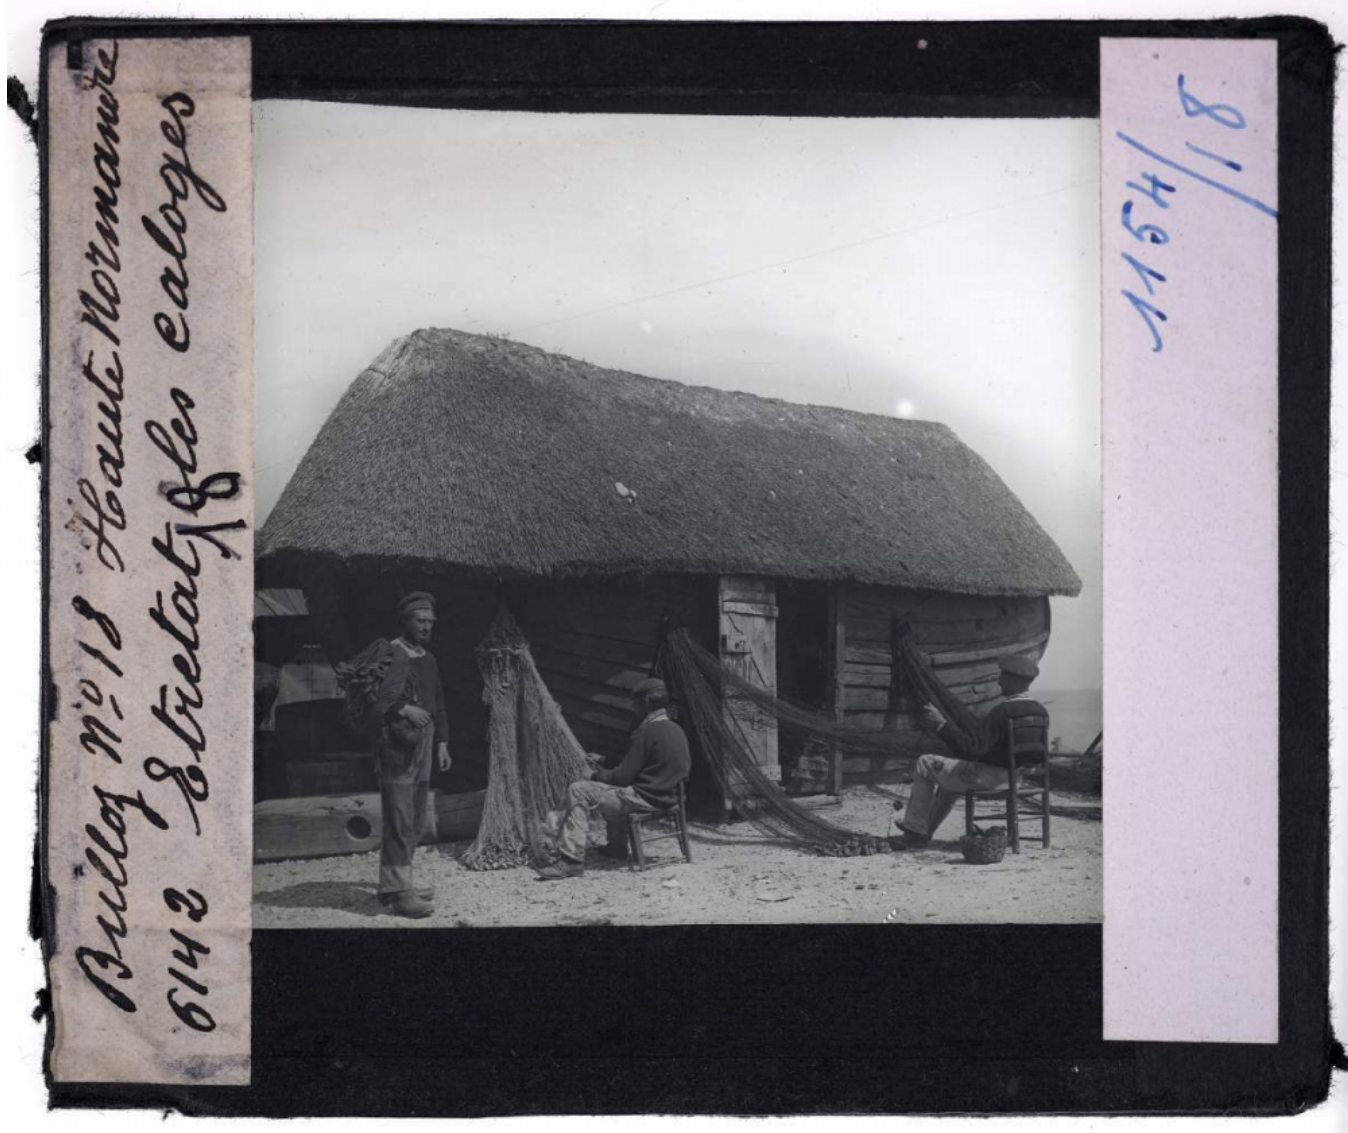 Bulloz No 18 Haute Normandie
6142 Etretat les caloges
18
1154/18